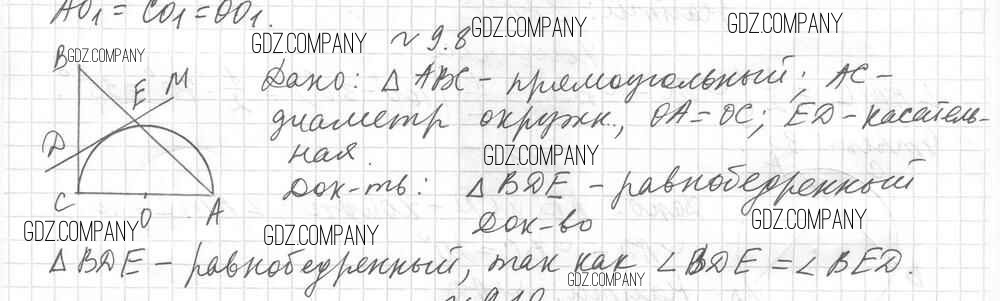 AO₁ = CO₁ = OO₁.
GDZ.COMPANY
GDZ.COMPANY
GDZ.COMPANY
GDZ.COMPANY
~ 9.8
B
E
M
D
C
O
A
Дано: △ ABC - прямоугольный; AC -
диаметр окружн., OA = OC; ED - касатель-
ная.
GDZ.COMPANY
Док-ть: △ BDE - равнобедренный
Док-во
GDZ.COMPANY
GDZ.COMPANY
GDZ.COMPANY
△ BDE - равнобедренный, так как ∠BDE = ∠BED.
GDZ.COMPANY